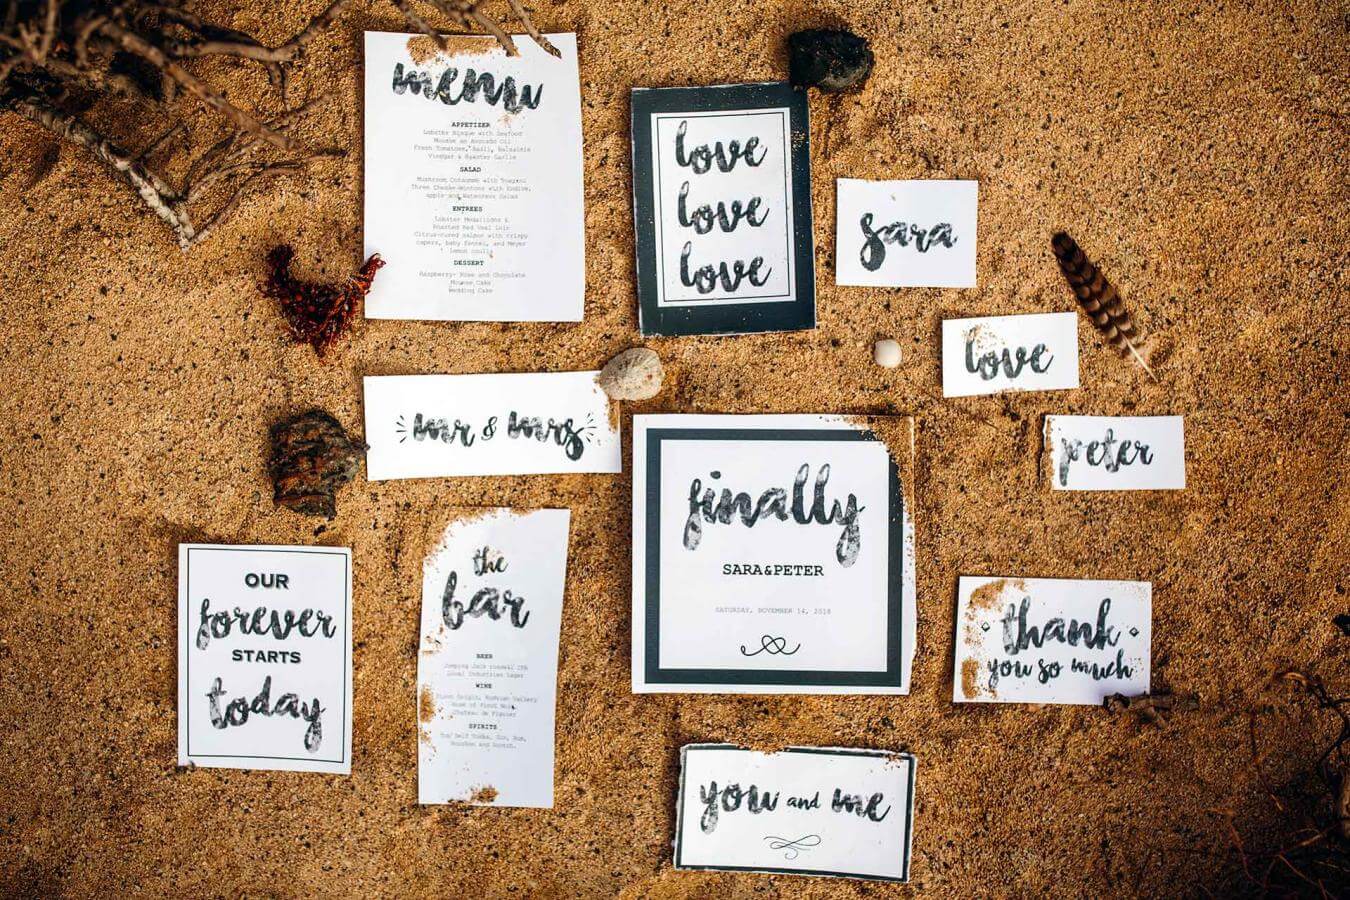 menu
APPETIZER
Lobster Bisque with Seafood
Mousse an Avocado Oil
Fresh Tomatoes, Basil, Balsamic
Vinegar & Roaster Garlic
SALAD
Mushroom Consommé with
Three Cheese Wontons with Endive,
apple and Watercress Salad
ENTREES
Lobster Medallions &
Roasted Red Veal Loin
Citrus-cured salmon with crispy
capers, baby fennel, and Meyer
lemon coulis
DESSERT
Raspberry- Rose and Chocolate
Mousse Cake
Wedding Cake
love
love
love
sara
love
mr & mrs
peter
finally
SARA&PETER
SATURDAY, NOVEMBER 14, 2018
OUR
forever
STARTS
today
the
bar
BEER
Jumping Jack IPA
Local Industries Lager
WINE
Pinot Grigio,
House of Pinot
Chateau de
SPIRITS
Top Self Vodka, Gin, Rum,
Bourbon and Scotch.
thank
you so much
you and me